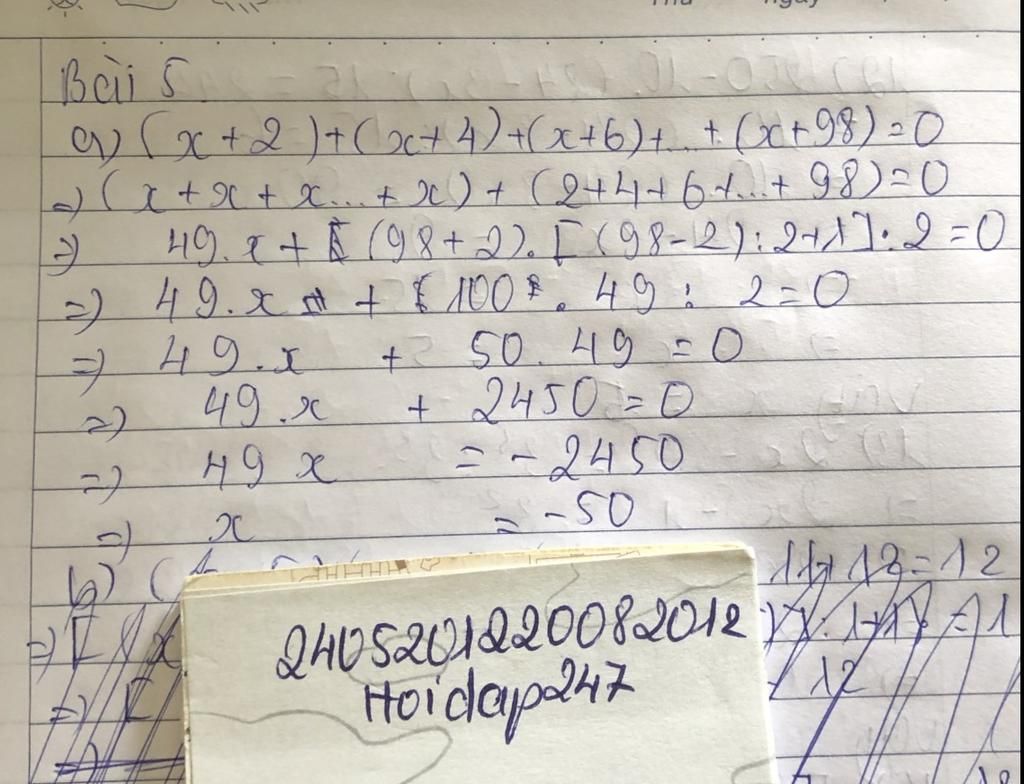 Thứ ngày
Bài 5
a) (x+2)+(x+4)+(x+6)+...+(x+98)=0
=> (x+x+x...+x)+(2+4+6+...+98)=0
=> 49.x+(98+2).[(98-2):2+1]:2=0
=> 49.x+100.49:2=0
=> 49.x+50.49=0
=> 49.x+2450=0
=> 49x=-2450
=> x=-50
b) ( 11+12=12
=> [ x
=> [ 12
2405201220082012
Hoidap247